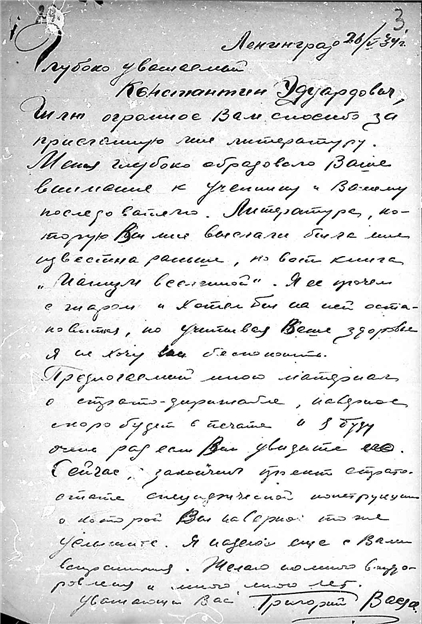 3
Ленинград 26/V 34 г.
Глубоко уважаемый
Константин Эдуардович,
Шлю огромное Вам спасибо за
присланную мне литературу.
Меня глубоко обрадовало Ваше
внимание к ученику и Вашему
последователю. Литература, ко-
торую Вы мне выслали была мне
известна раньше, но вот книга
Я ее прочел
с жаром и хотел бы на ней оста-
новится, но учитывая Ваше здоровье
я не хочу Вас беспокоить.
Предлогаемый мною материал
о страто-дирижабле, наверное
скоро будет в печате и я буду
очень рад если Вы увидите его.
Сейчас, закончил проект страто-
стата специфической конструкции
о которой Вы наверное тоже
услышите. Я надеюсь еще с Вами
встретится. Желаю полного выздо-
ровления и много много лет.
уважающий Вас Григорий